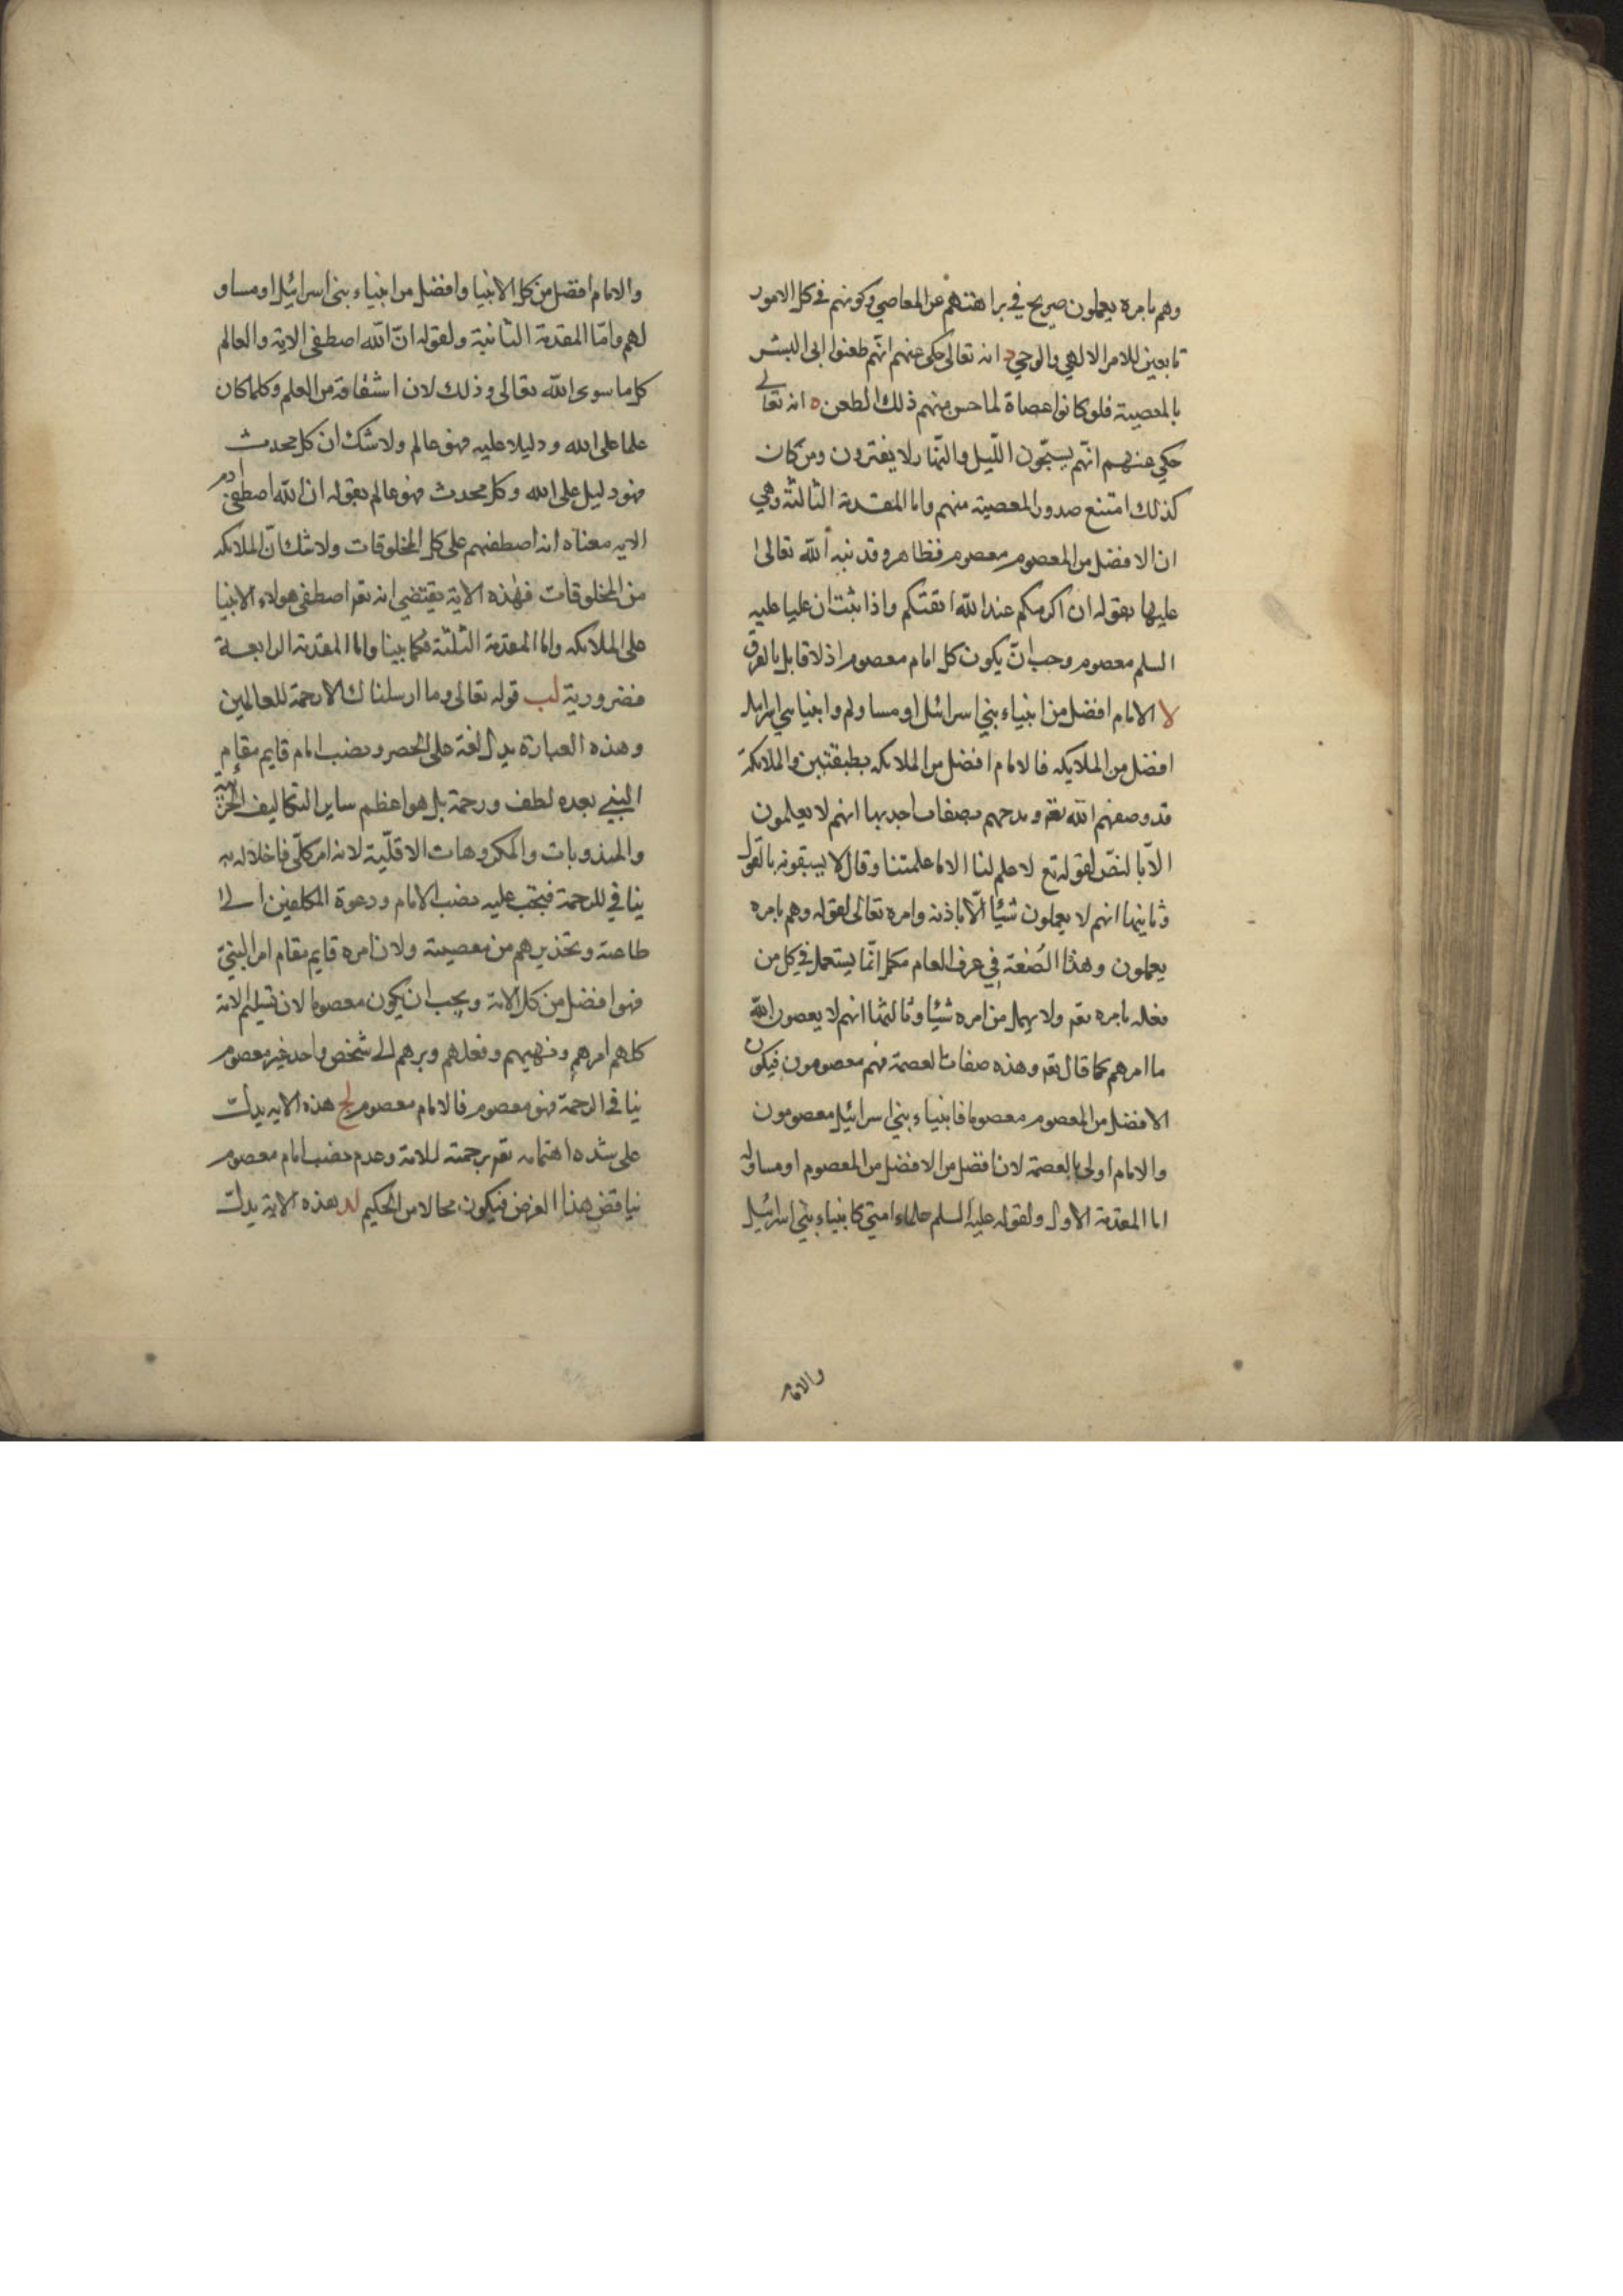 وهم بامره يعملون صريح في براهتهم عن المعاصي وكونهم في كل الامور
تابعين للامر الالهي والوحي د انه تعالى حكى عنهم انهم طعنوا ابى البشر
بالمعصية فلو كانوا عصاة لما حسن منهم ذلك الطعن ه انه تعالى
حكى عنهم انهم يسبحون الليل والنهار لا يفترون ومن كان
كذلك امتنع صدور المعصية منهم واما المقدمة الثالثة وهي
ان الافضل من المعصوم معصوم فظاهر وقد نبه الله تعالى
عليها بقوله ان اكرمكم عند الله اتقتكم واذا ثبت ان عليا عليه
السلم معصوم وجب ان يكون كل امام معصوم اذ لا قايل بالفرق
لا الامام افضل من انبياء بني اسرائيل او مساو لهم وانبياء بني اسرائيل
افضل من الملايكه فالامام افضل من الملائكه بطبقتين والملائكة
قد وصفهم الله تع ومدحهم بصفات احديها انهم لا يعلمون
الا بالنص لقوله تع لا علم لنا الا ما علمتنا وقال لا يسبقونه بالقول
وثانيها انهم لا يعملون شيئا الا باذنه وامره تعالى لقوله وهم بامره
يعملون وهذا الصنعة في عرف العام انما يستعمل في كل من
فعله بامره تع ولا يهمل من امره شيئا وثالثها انهم لا يعصون الله
ما امرهم كما قال تع وهذه صفات العصمة فهم معصومون فيكون
الافضل من المعصوم معصوما فانبياء بني اسرائيل معصومون
والامام اولى بالعصمة لانه افضل من الافضل من المعصوم او مساو له
اما المقدمة الاولى ولقوله عليه السلم علماء امتي كانبياء بني اسرائيل
والامام
والامام افضل من كل الانبيا وافضل من انبياء بني اسرائيل او مساو
لهم واما المقدمة الثانية ولقوله ان الله اصطفى الاية والعالم
كل ما سوى الله تعالى وذلك لان اشتقاقه من العلم وكلما كان
علما على الله ودليلا عليه فهو عالم ولا شك ان كل محدث
فهو دليل على الله وكل محدث فهو عالم بقوله ان الله اصطفى ادم
الايه معناه انه اصطفهم على كل المخلوقات ولا شك ان الملائكه
من المخلوقات فهذه الاية يقتضي انه تع اصطفى هولاء الانبيا
على الملائكه واما المقدمة الثلثة فكما بينا واما المقدمة الرابعة
فضرورية لب قوله تعالى وما ارسلناك الا رحمة للعالمين
وهذه العبارة يدل لغة على الحصر ونصب امام قايم مقام
النبي بعده لطف ورحمة بل هو اعظم ساير التكاليف الجزئية
والمندوبات والمكروهات الاقلية لانه امر كلي فاخلاله به
ينافي للرحمة فيجب عليه نصب الامام ودعوة المكلفين الى
طاعته وتحذيرهم من معصيته ولان امره قايم مقام امر النبي
فهو افضل من كل الامة ويجب ان يكون معصوما لان تسليم الامة
كلهم امرهم ونهيهم وفعلهم وبرهم الى شخص واحد غير معصوم
ينافي الرحمة فهو معصوم فالامام معصوم لج هذه الايه يدل
على شده اهتمامه تع برحمته للامة وعدم نصب امام معصوم
يناقض هذا الغرض فيكون محالا من الحكيم لد هذه الاية يدل